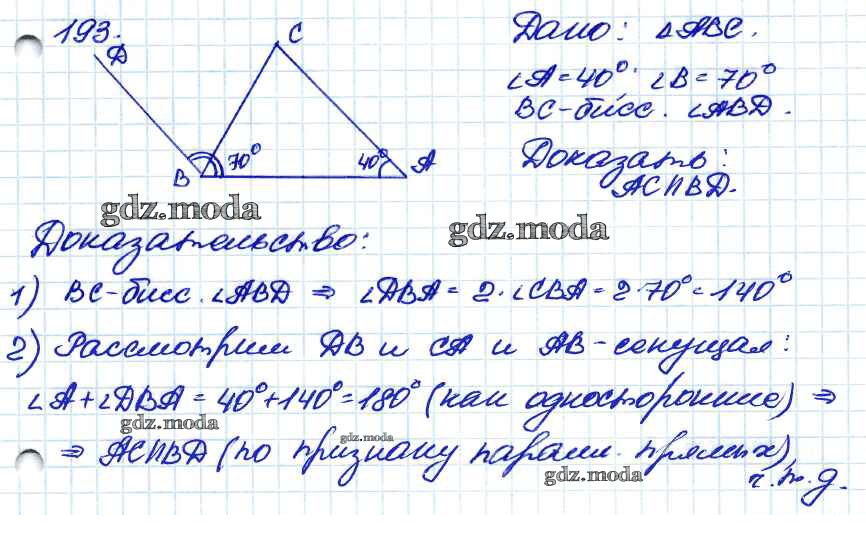 193.
D
C
B
70°
40°
A
Дано: ΔABC.
∠A = 40°; ∠B = 70°
BC - бисс. ∠ABD.
Доказать:
AC II BD.
gdz.moda
gdz.moda
Доказательство:
1) BC - бисс. ∠ABD ⇒ ∠DBA = 2·∠CBA = 2·70° = 140°
2) Рассмотрим DB и CA и AB - секущая:
∠A + ∠DBA = 40° + 140° = 180° (как односторонние) ⇒
gdz.moda
gdz.moda
⇒ AC II BD (по признаку паралл. прямых),
gdz.moda
ч.т.д.